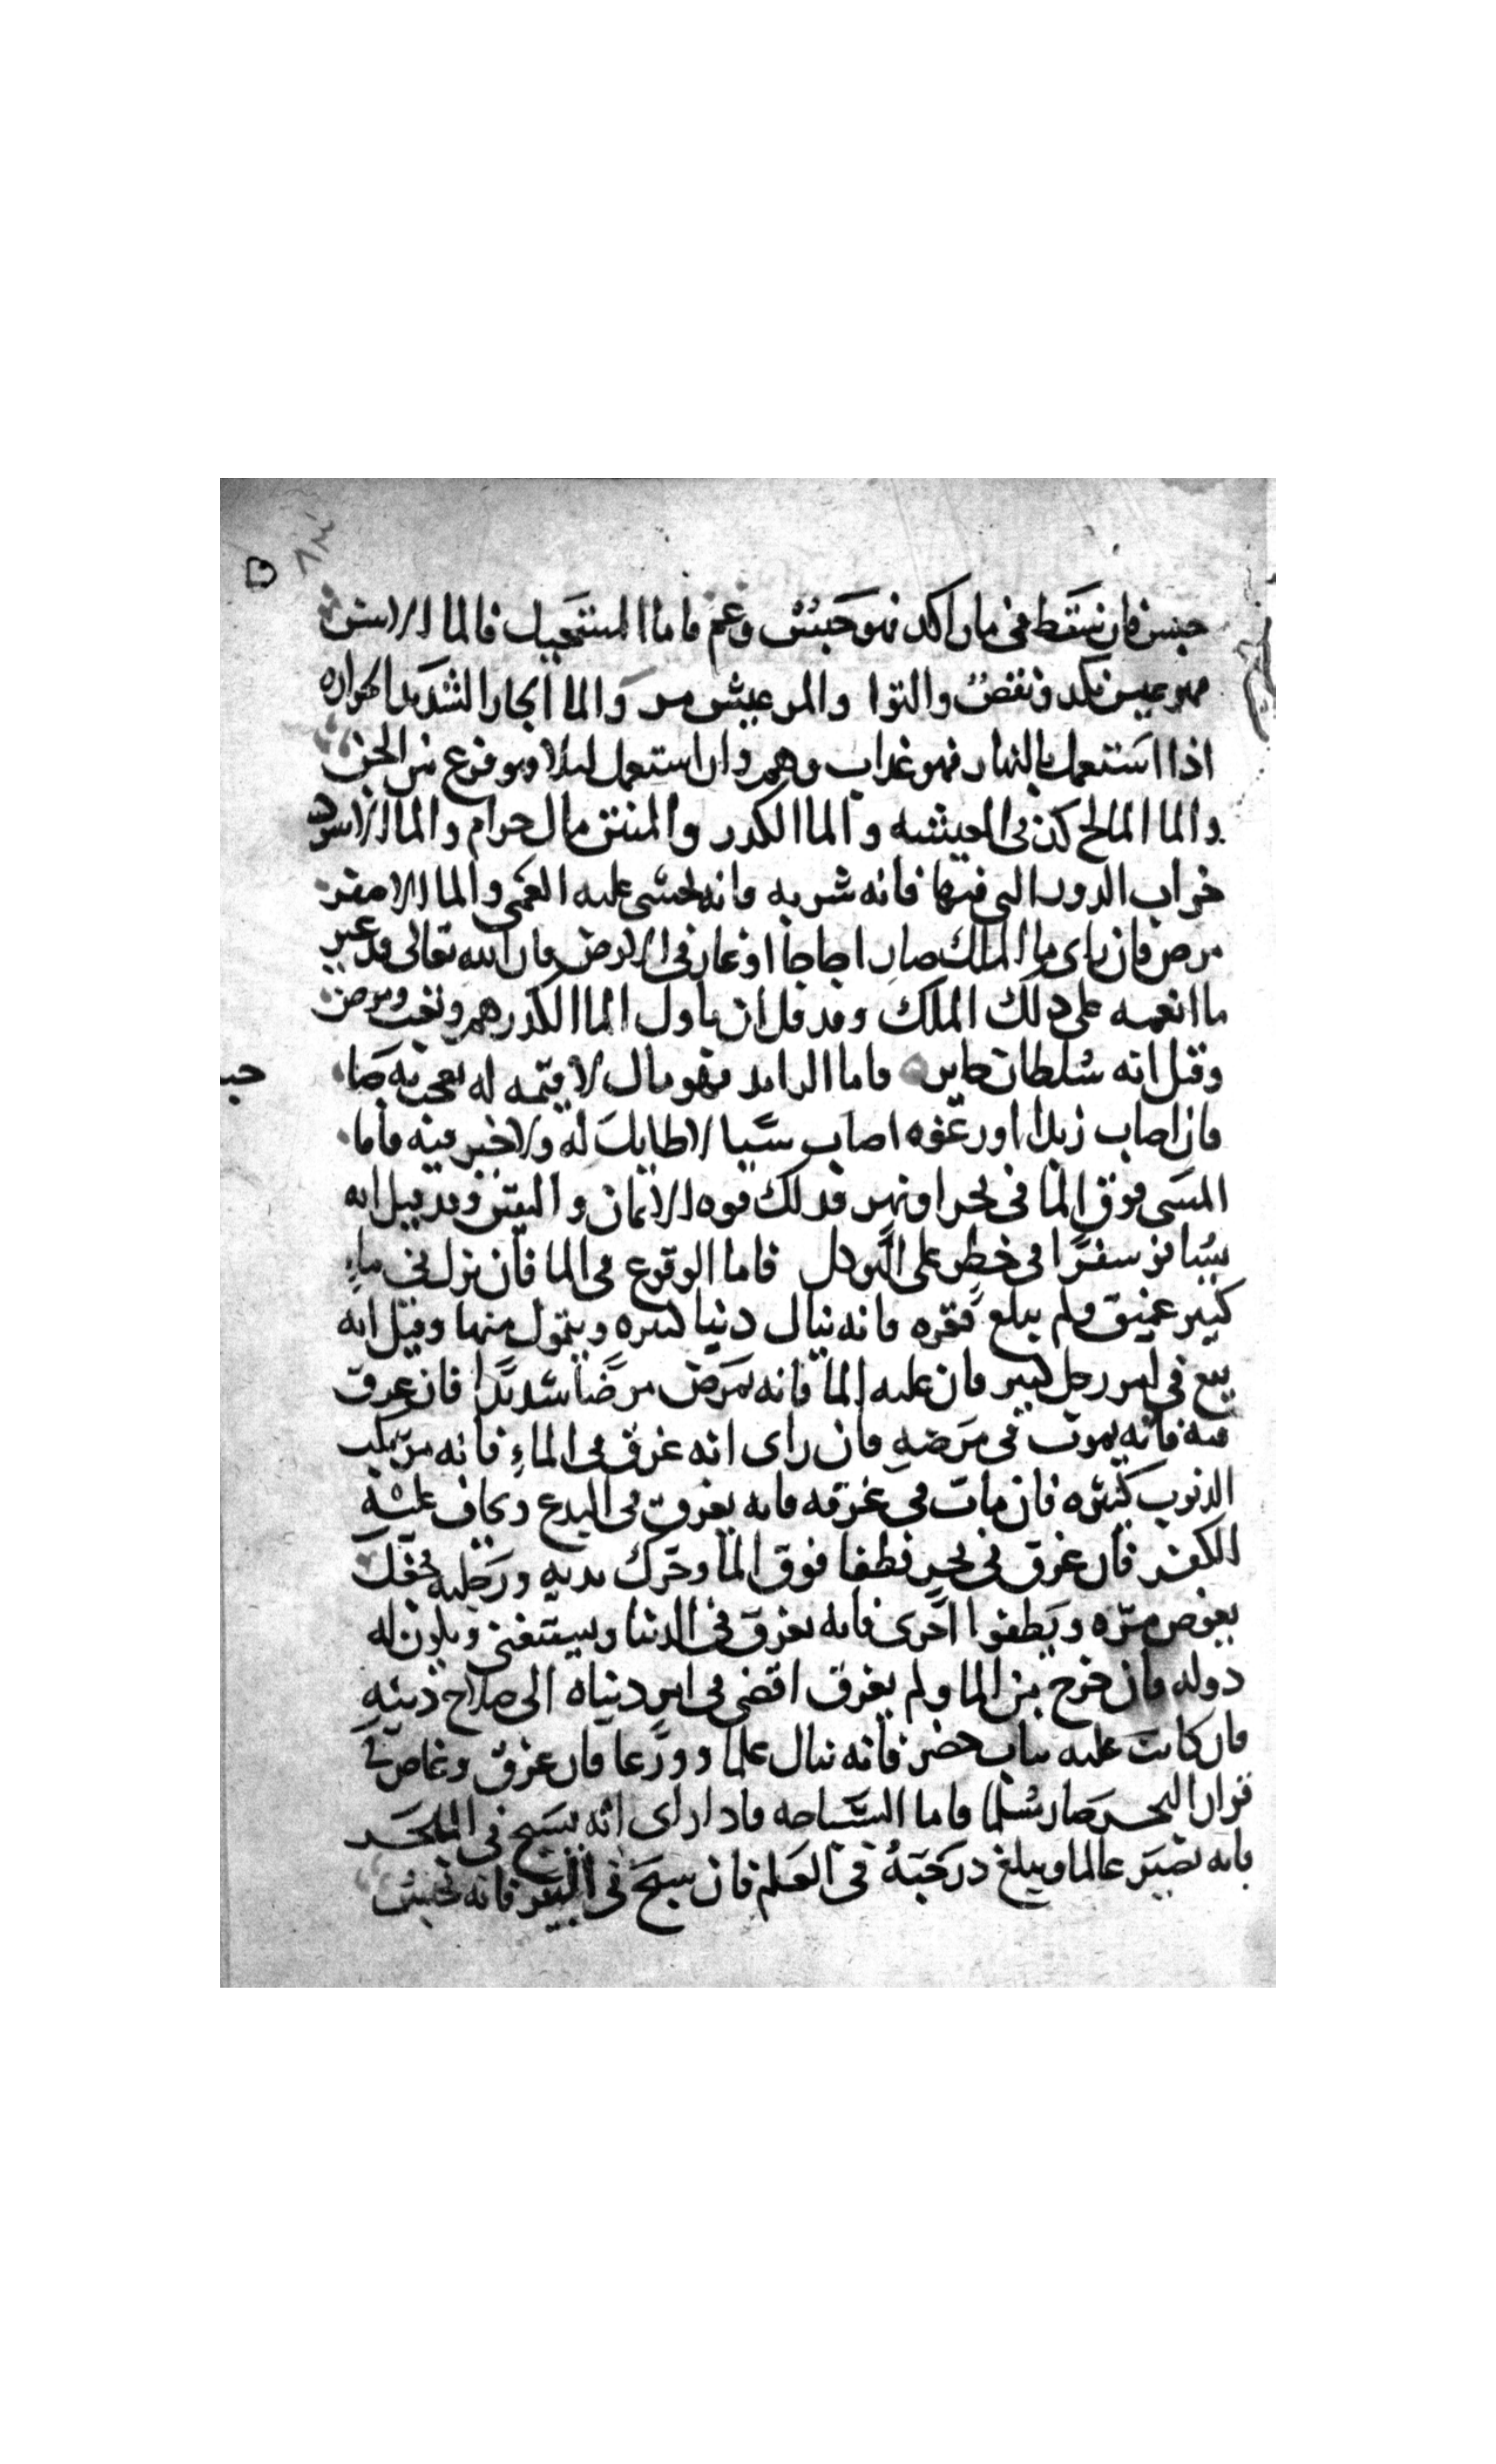 حبس فان سقط في ما راكد فهو حبس وغم فاما المستحيل فالما الاسن
فهو عيش نكد ونغص والتوا والمر عيش مر والما الحار الشديد الحراره
اذا استعمل بالنهار فهو عذاب وهم وان استعمل ليلا فهو فزع من الجن
والما المالح كدّ في المعيشه والما الكدر والمنتن مال حرام والما الاسود
خراب الدور التي فيها فانه شربه فانه يخشى عليه العمى والما الاصفر
مرض فان راى ما الملك صار اجاجا او غار في الارض فان الله تعالى قد غير
ما انعمه على ذلك الملك وقد قيل ان تاول الما الكدر هم وتعب ومرض
وقيل انه سلطان جاير فاما الزابد فهو مال لا قيمه له
فان اصاب زبدا او رغوه اصاب شيا لا طايل له ولا خير فيه فاما
المشى فوق الما في بحر او نهر فذلك قوه الايمان واليقين وقد قيل انه
يسافر سفرا في خطر على التوكل فاما الوقوع في الما فان نزل في ماءٍ
كبير عميق ولم يبلغ قعره فانه ينال دنيا كثيره ويتمول منها وقيل انه
يقع في امر رجل كبير فان غلبه الما فانه يمرض مرضا شديدا فان غرق
منه فانه يموت في مرضه فان راى انه غرق في الماءِ فانه مرتكب
الذنوب كثيره فان مات في غرقه فانه يغرق في البدع ويخاف عليه
الكفر فان غرق في بحر فطفا فوق الما وحرك يديه ورجليه فجعل
يغوص مرّه ويطفوا اخرى فانه يغرق في الدنيا ويستغني ويكون له
دوله فان خرج من الما ولم يغرق افضى في امر دنياه الى صلاح دينه
فان كانت عليه ثياب خضر فانه ينال علما وورعا فان غرق وغاص في
قرار البحر صار فاما السباحه فاذا راى انه يسبح في البحر
فانه يصير عالما ويبلغ درجته في العلم فان سبح في فانه يحبس